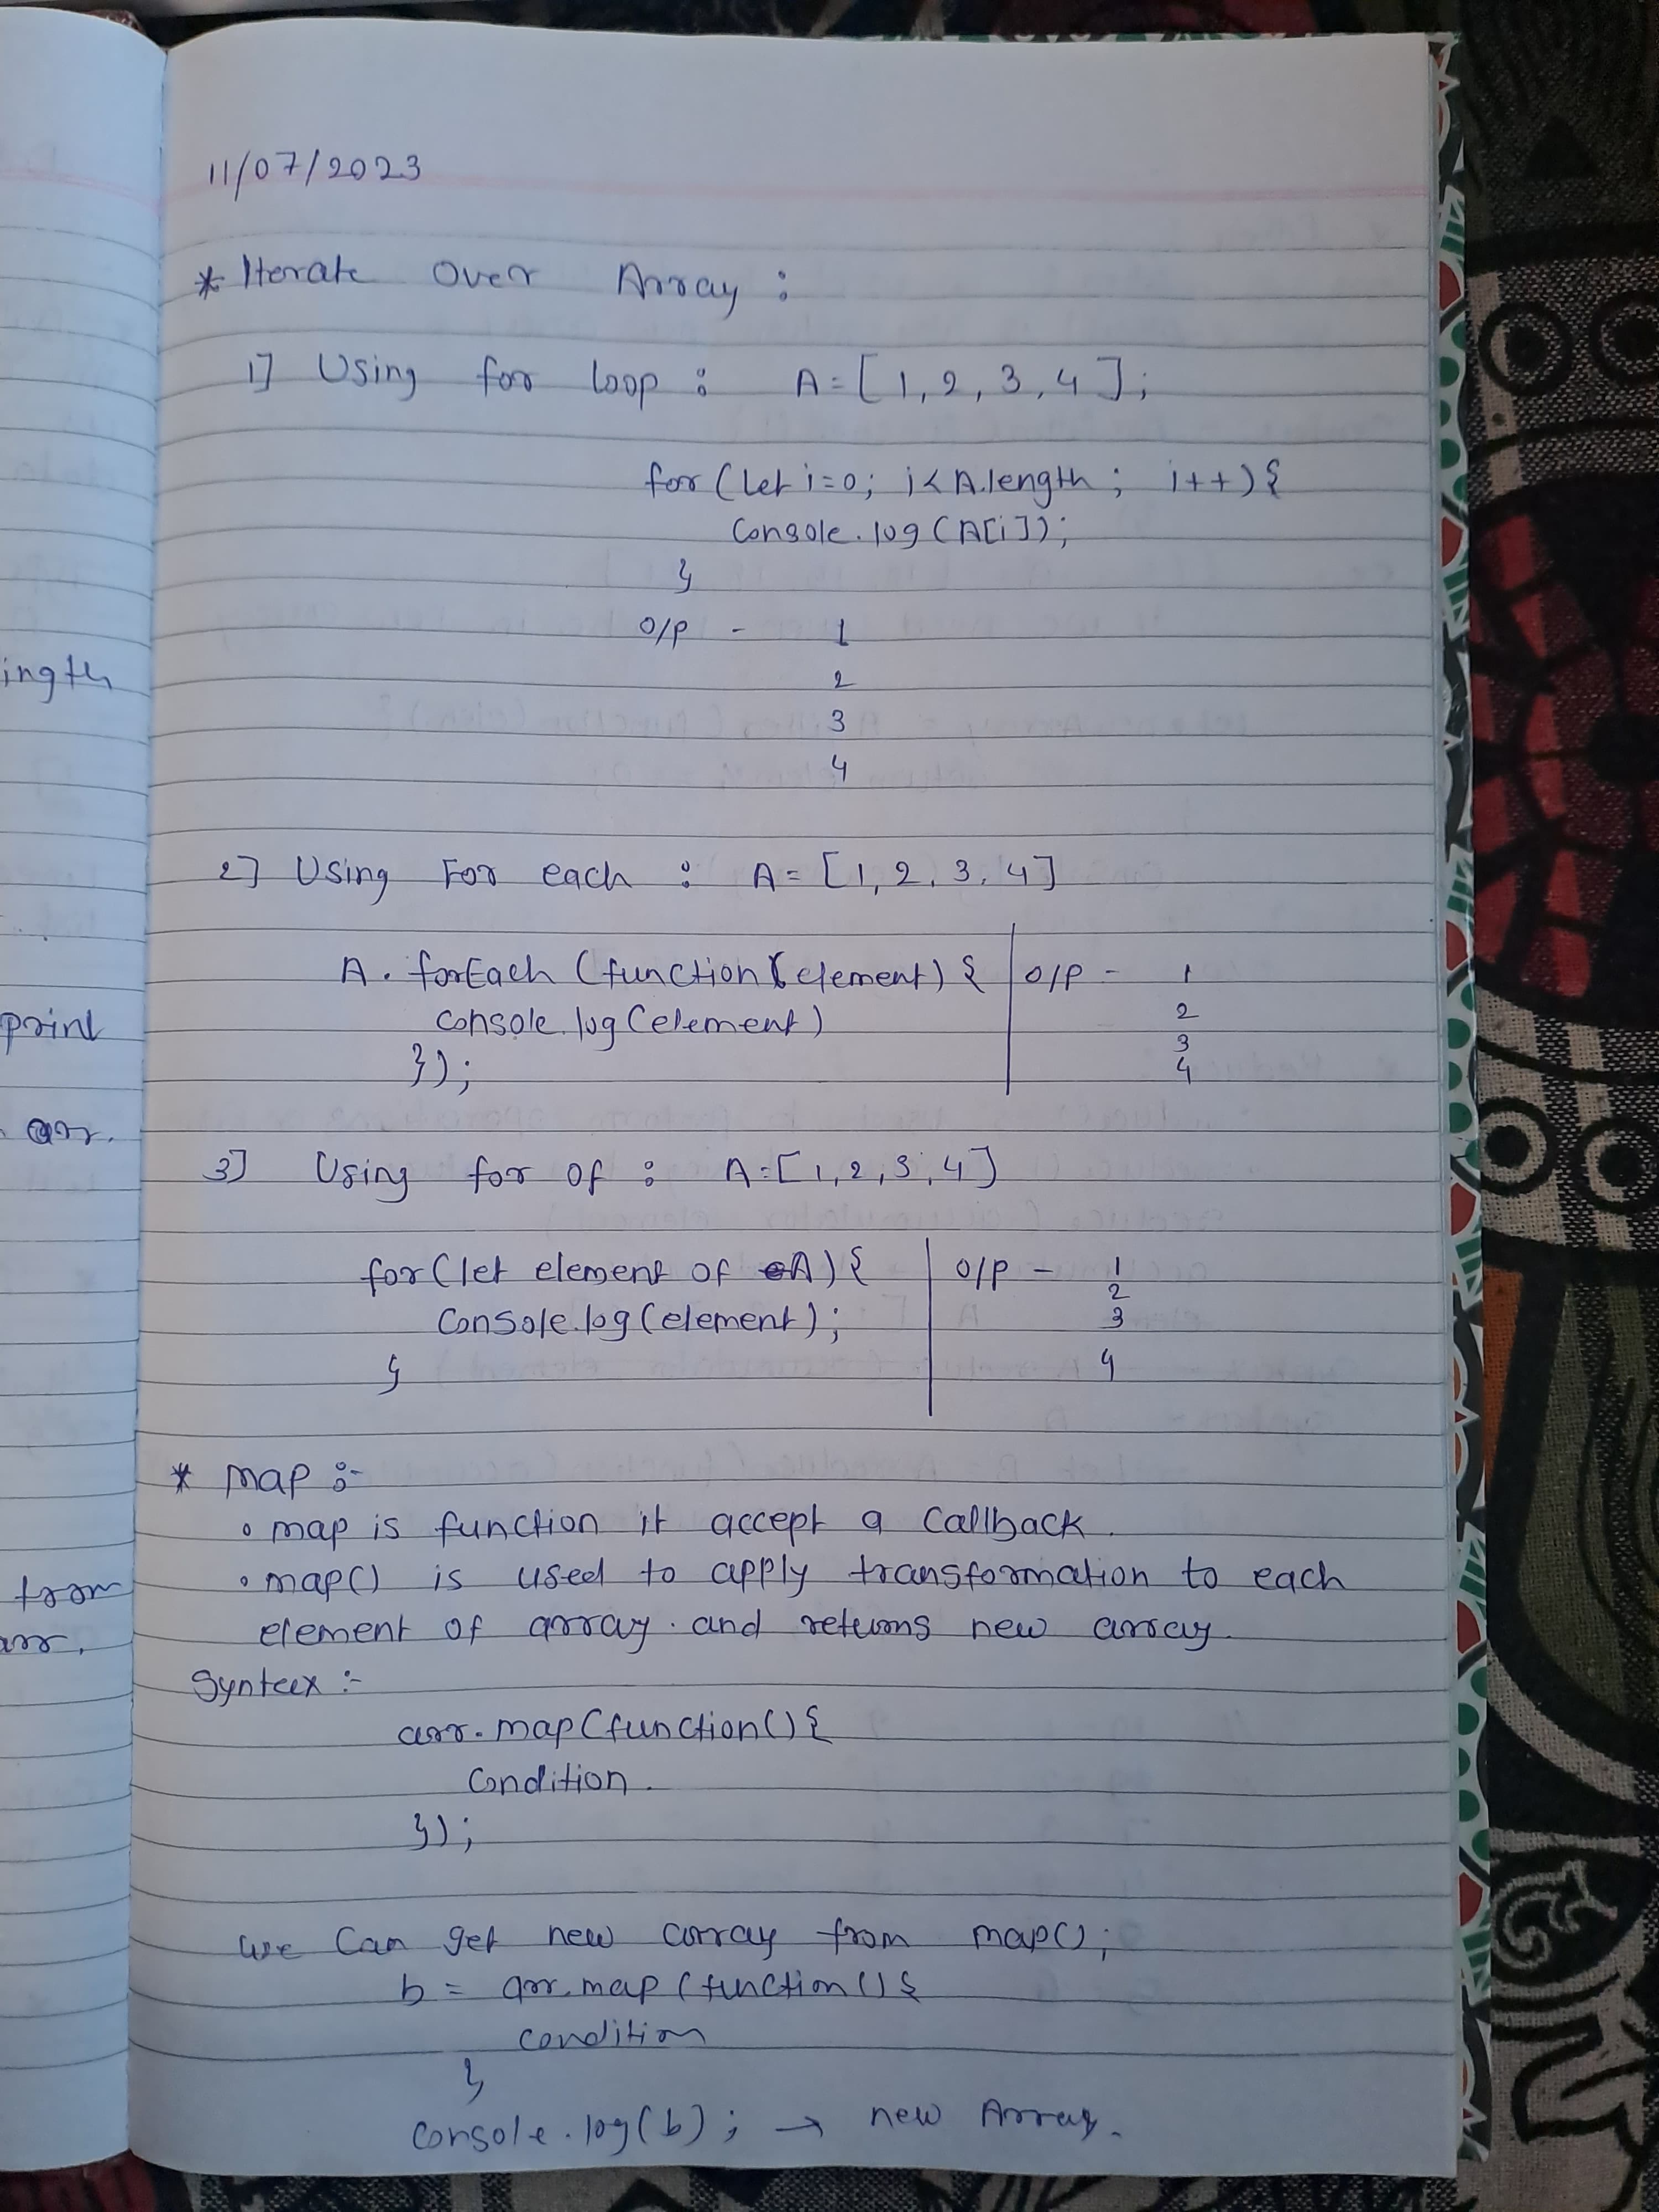 11/07/2023
* Iterate Over Array :
1] Using for loop : A = [ 1, 2, 3, 4 ] ;
for ( let i = 0; i < A.length ; i++ ) {
Console.log ( A[i] );
}
O/P - 1
2
3
4
2] Using For each : A = [ 1, 2, 3, 4 ]
A. forEach ( function ( element ) { O/P - 1
console.log ( element ) 2
3
}); 4
3] Using for of : A = [ 1, 2, 3, 4 ]
for ( let element of A ) { O/P - 1
2
Console.log ( element ) ; 3
} 4
* map :-
• map is function it accept a Callback.
• map() is used to apply transformation to each
element of array. and returns new array.
Syntax :-
arr. map ( function () {
Condition.
});
we Can get new array from map();
b = arr. map ( function () {
condition
}
console.log(b) ; → new Array.
ingth
print
arr.
from
arr.